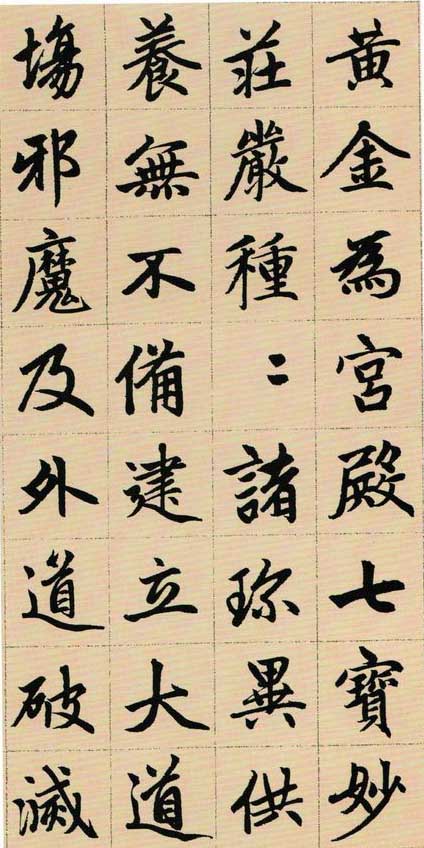 黄金為宮殿七寶妙
莊嚴種〻諸珎異供
養無不備建立大道
塲邪魔及外道破滅